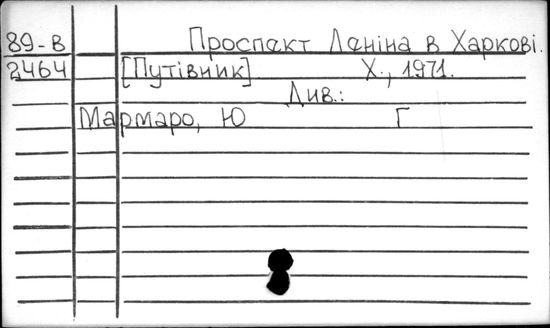 89-В Проспект Леніна в Харкові.
2464 [Путівник] Х., 1971.
Див.:
Мармаро, Ю Г